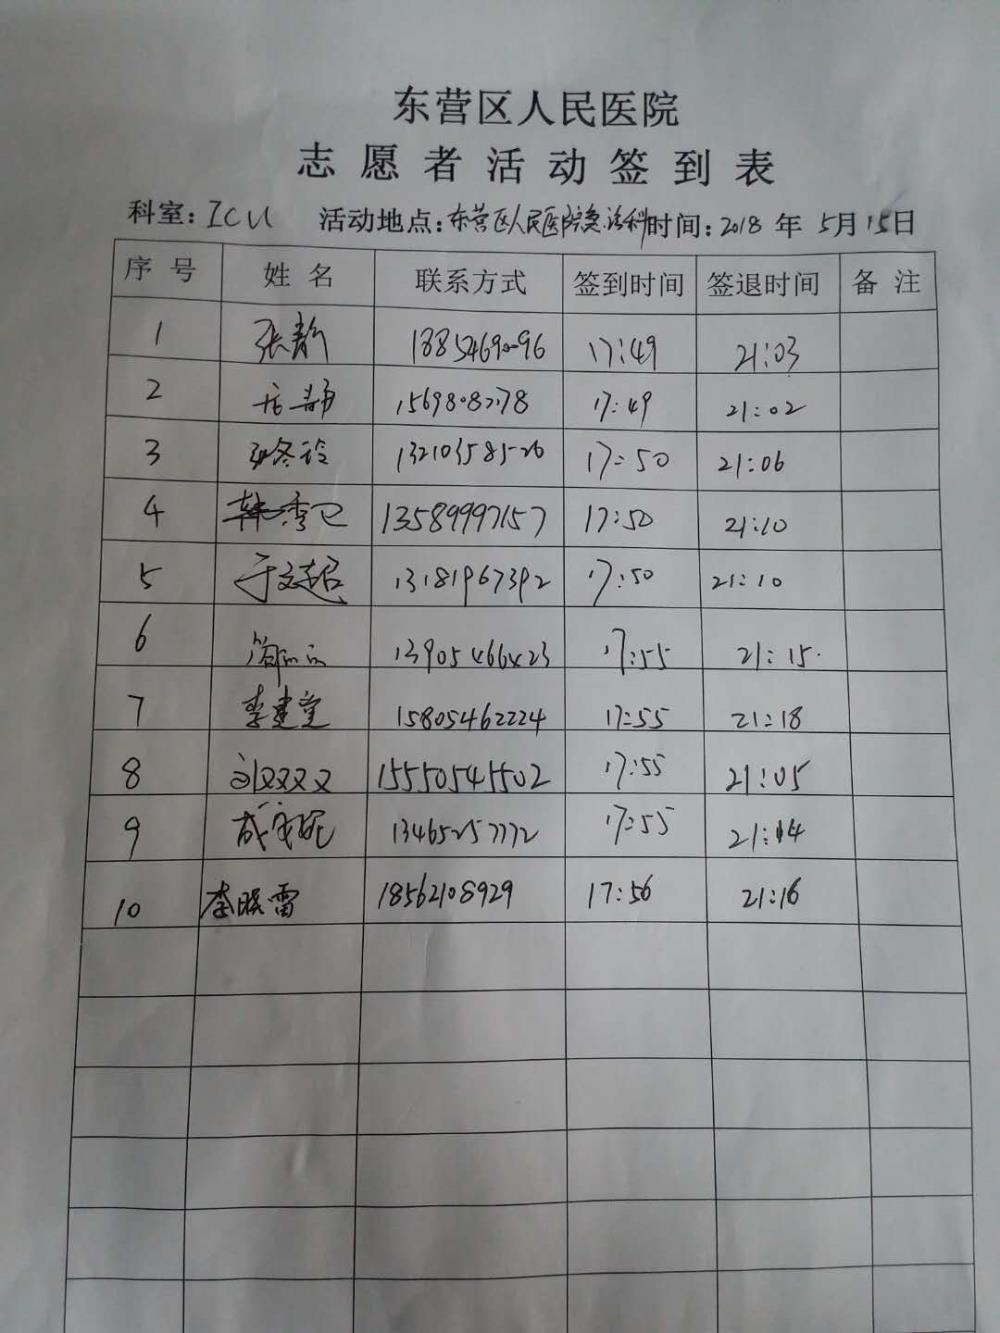 东营区人民医院
志愿者活动签到表
科室:ICU 活动地点:东营区人民医院急诊科 时间:2018年5月15日
序号 姓名 联系方式 签到时间 签退时间 备注
1 张静 17:49 21:03
2 17:49 21:02
3 17:50 21:06
4 韩秀卫 13589997157 17:50 21:10
5 于文超 13181967392 17:50 21:10
6 13905466423 17:55 21:15
7 李建堂 15805462224 17:55 21:18
8 刘双双 15550541502 17:55 21:05
9 13465257772 17:55 21:14
10 李晓雷 18562108929 17:56 21:16